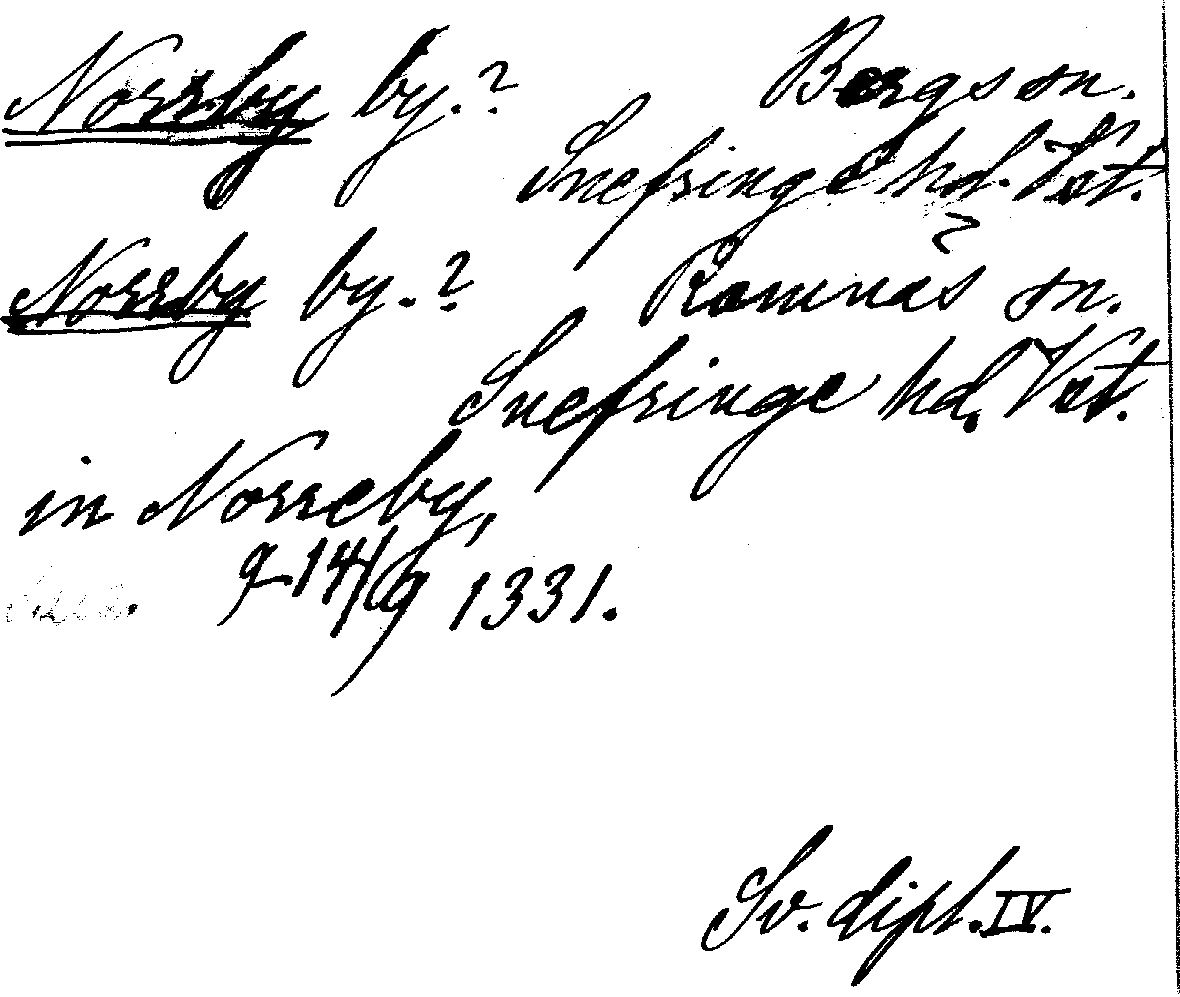 Norrby by.? Bergs sn.
Snefringe hd. Vst.
?
Norrby by.? Ramnäs sn.
Snefringe hd. Vst.
in Norreby,
14/9 1331.
Sv. dipl. IV.